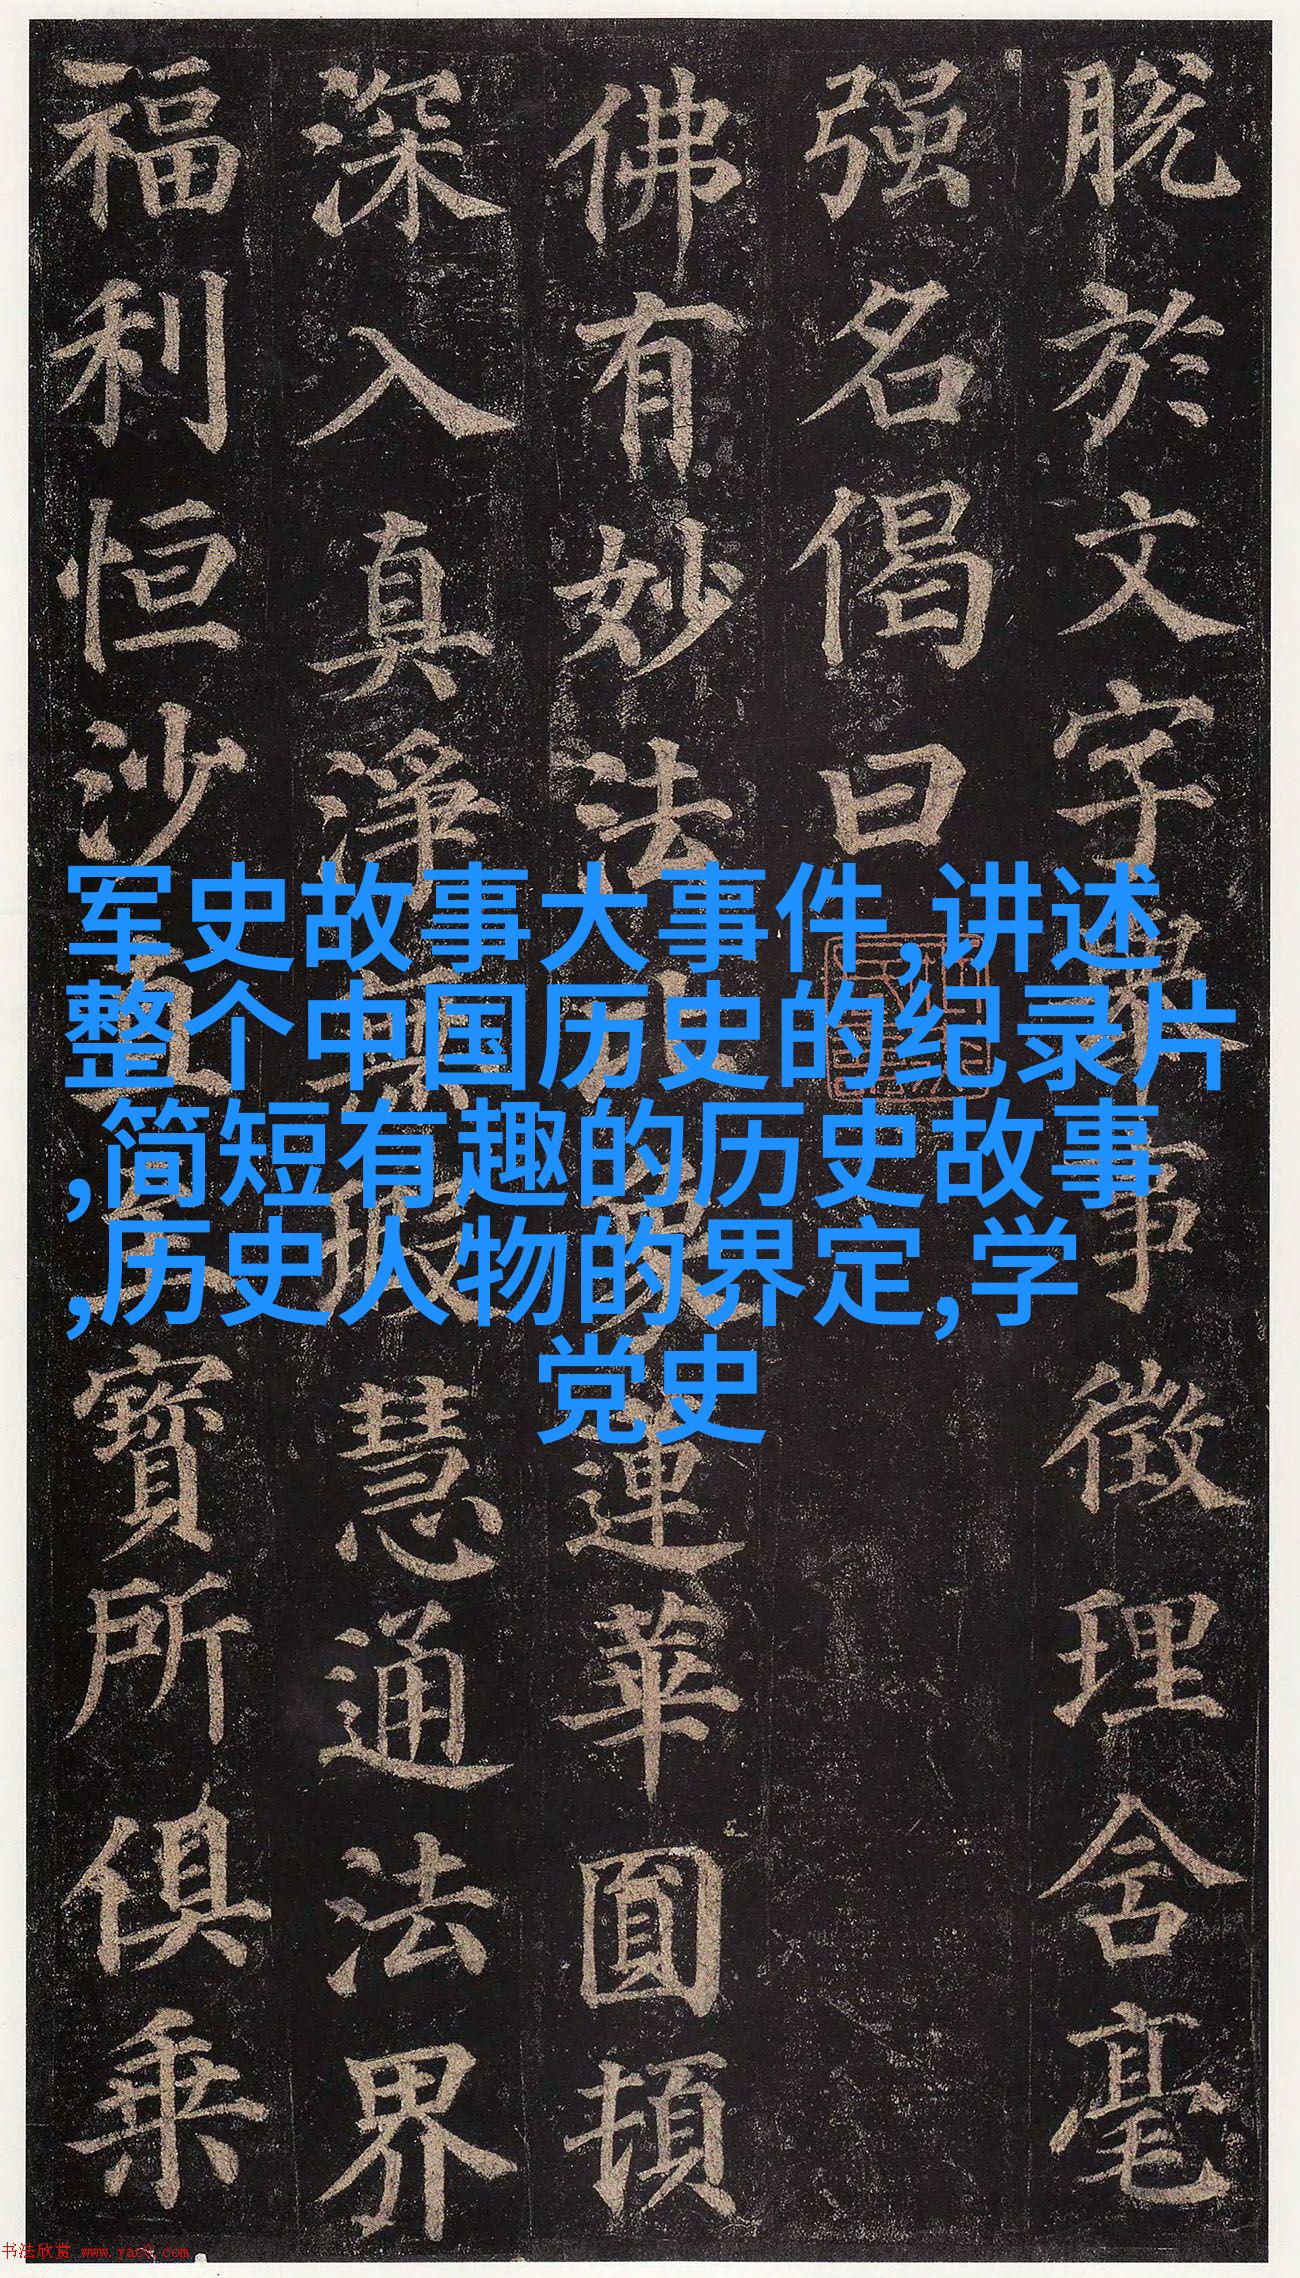 脱於文字舉事徵理含毫
强名偈曰
佛有妙法比象蓮華圓頓
深入真淨無瑕慧通法界
福利恒沙直至寶所俱乘
军史故事大事件,讲述
整个中国历史的纪录片
,简短有趣的历史故事
,历史人物的界定,学
党史
书法欣赏 www.yac8.com